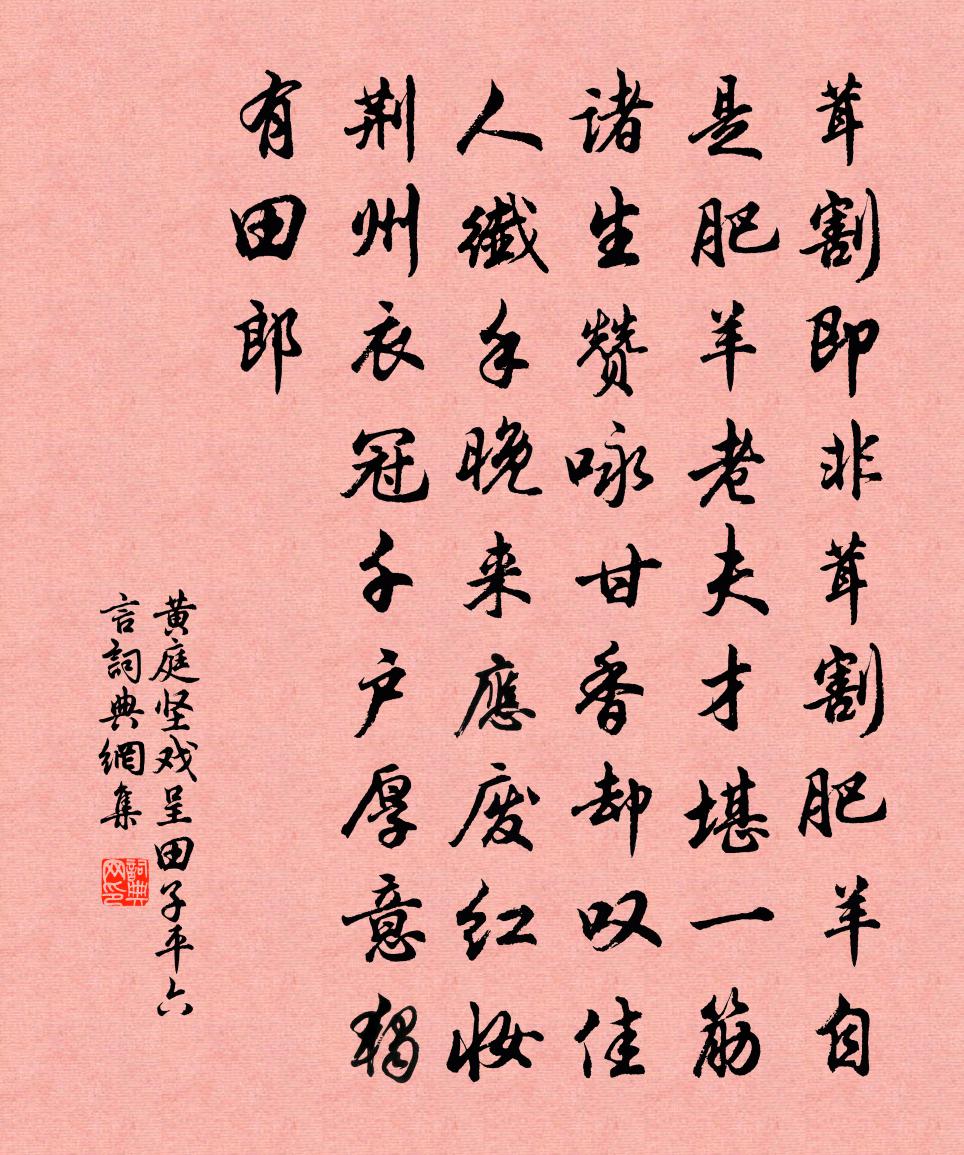 茸割即非茸割肥羊自
是肥羊老夫才堪一筯
诸生赞咏甘香却叹佳
人纖手晚来應废红妆
荆州衣冠千户厚意独
有田郎
黄庭坚戏呈田子平六
言詞典網集
詞典网印